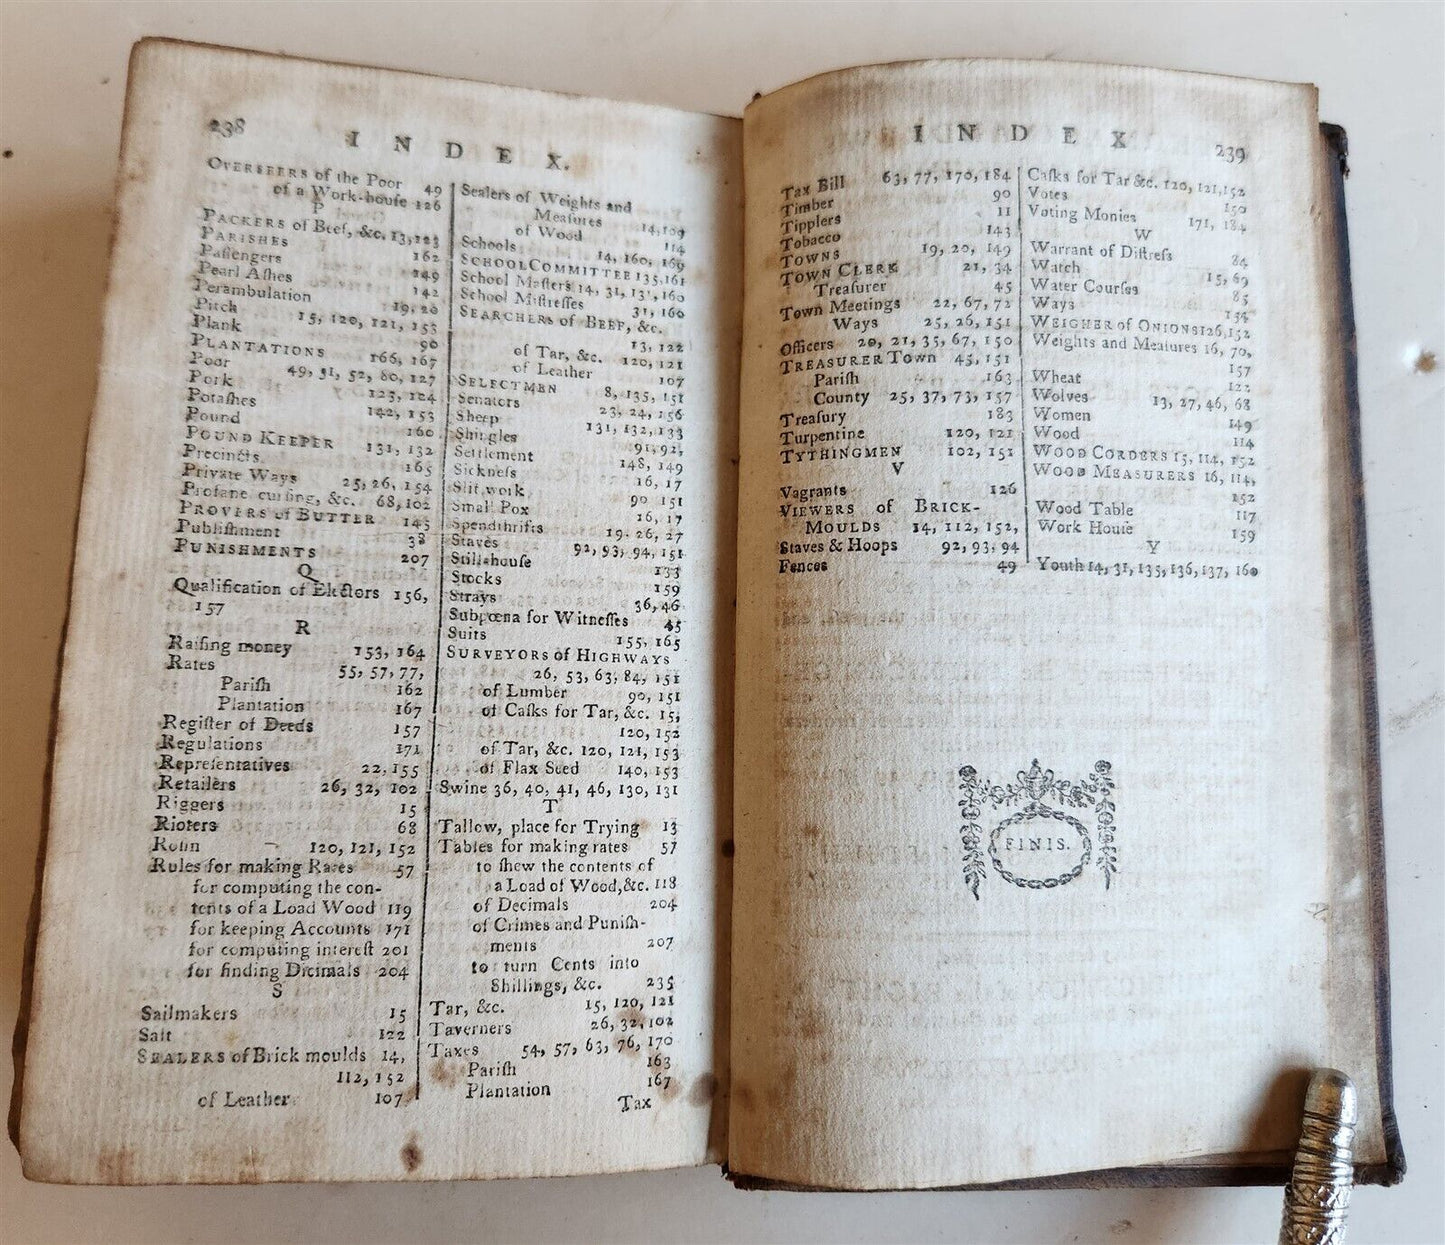 238
INDEX.
OVERSEERS of the Poor 49
of a Work-house 126
P
PACKERS of Beef, &c. 13, 123
PARISHES 162
Paſſengers 149
Pearl Aſhes 142
Perambulation 19, 20
Pitch 15, 120, 121, 153
Plank 90
PLANTATIONS 166, 167
Poor 49, 51, 52, 80, 127
Pork 123, 124
Potaſhes 142, 153
Pound 160
POUND KEEPER 131, 132
Precincts 165
Private Ways 25, 26, 154
Profane curſing, &c. 68, 102
PROVERS of BUTTER 145
Publiſhment 38
PUNISHMENTS 207
Q
Qualification of Electors 156,
157
R
Raiſing money 153, 164
Rates 55, 57, 77,
Pariſh 162
Plantation 167
Regiſter of Deeds 157
Regulations 171
Repreſentatives 22, 155
Retailers 26, 32, 102
Riggers 15
Rioters 68
Roſin 120, 121, 152
Rules for making Rates 57
for computing the con-
tents of a Load Wood 119
for keeping Accounts 171
for computing intereſt 201
for finding Dicimals 204
S
Sailmakers 15
Salt 122
SEALERS of Brick moulds 14,
112, 152
of Leather 107
Sealers of Weights and
Meaſures 14, 109
of Wood 114
Schools 14, 160, 169
SCHOOL COMMITTEE 135, 161
School Maſters 14, 31, 131, 160
School Miſtreſſes 31, 160
SEARCHERS of BEEF, &c.
13, 122
of Tar, &c. 120, 121
of Leather 107
SELECTMEN 8, 135, 151
Senators 23, 24, 156
Sheep 131, 132, 133
Shingles 91, 92,
Settlement 148, 149
Sickneſs 16, 17
Slit work 90 151
Small Pox 16, 17
Spendthrifts 19, 26, 27
Staves 92, 93, 94, 151
Still-houſe 133
Stocks 159
Strays 36, 46
Subpœna for Witneſſes 45
Suits 155, 165
SURVEYORS of HIGHWAYS
26, 53, 63, 84, 151
of Lumber 90, 151
of Caſks for Tar, &c. 15,
120, 152
of Tar, &c. 120, 121, 153
of Flax Seed 140, 153
Swine 36, 40, 41, 46, 130, 131
T
Tallow, place for Trying 13
Tables for making rates 57
to ſhew the contents of
a Load of Wood, &c. 118
of Decimals 204
of Crimes and Puniſh-
ments 207
to turn Cents into
Shillings, &c. 235
Tar, &c. 15, 120, 121
Taverners 26, 32, 102
Taxes 54, 57, 63, 76, 170
Pariſh 163
Plantation 167
Tax
INDEX
239
Tax Bill 63, 77, 170, 184
Timber 90
Tipplers 11
Tobacco 143
TOWNS 19, 20, 149
TOWN CLERK 21, 34
Treaſurer 45
Town Meetings 22, 67, 72
Ways 25, 26, 151
Officers 20, 21, 35, 67, 150
TREASURER TOWN 45, 151
Pariſh 163
County 25, 37, 73, 157
Treaſury 183
Turpentine 120, 121
TYTHINGMEN 102, 151
V
Vagrants 126
VIEWERS of BRICK-
MOULDS 14, 112, 152,
Staves & Hoops 92, 93, 94
Fences 49
Caſks for Tar &c. 120, 121, 152
Votes 150
Voting Monies 171, 184
W
Warrant of Diſtreſs 84
Watch 15, 69
Water Courſes 85
Ways 154
WEIGHER of ONIONS 126, 152
Weights and Meaſures 16, 70,
157
Wheat 122
Wolves 13, 27, 46, 68
Women 149
Wood 114
WOOD CORDERS 15, 114, 152
WOOD MEASURERS 16, 114,
152
Wood Table 117
Work Houſe 159
Y
Youth 14, 31, 135, 136, 137, 160
FINIS.